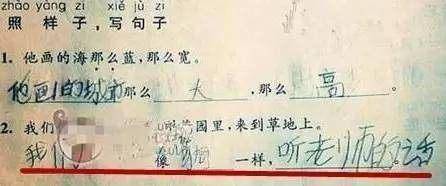 zhào yàng zi xiě jù zi
照 样 子，写 句 子
1. 他画的海那么蓝，那么宽。
他画的城市那么 大 ，那么 高 。
2. 我们 园里，来到草地上。
我们 像 一样，听老师的话